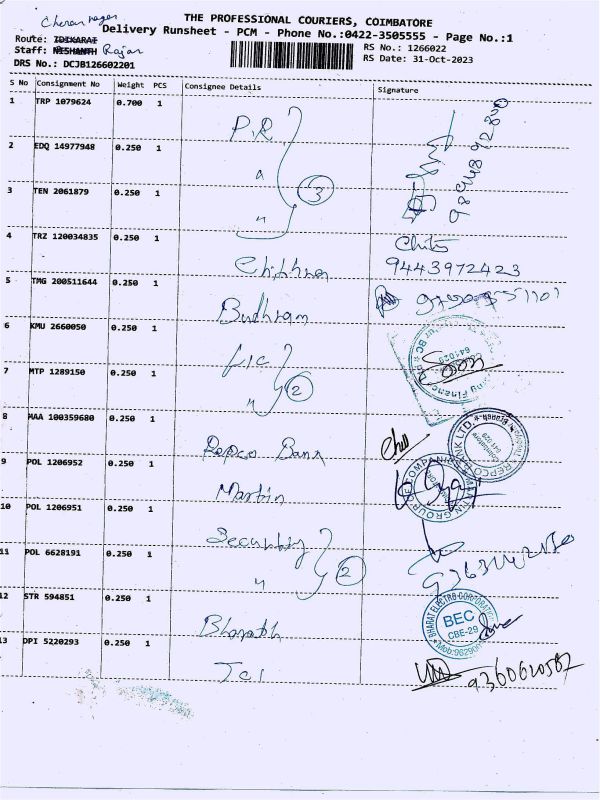 Cheran nagar
THE PROFESSIONAL COURIERS, COIMBATORE
Delivery Runsheet - PCM - Phone No.:0422-3505555 - Page No.:1
Route: IDIKARAI
RS No.: 1266022
Staff: NISHANTH Rajan
RS Date: 31-Oct-2023
DRS No.: DCJB126602201
S No Consignment No Weight PCS Consignee Details Signature
1 TRP 1079624 0.700 1 P.R
2 EDQ 14977948 0.250 1 "
3 TEN 2061879 0.250 1 " 3
4 TRZ 120034835 0.250 1 Chithra
9443972423
5 TMG 200511644 0.250 1 Budhram
6 KMU 2660050 0.250 1 LIC
7 MTP 1289150 0.250 1 " 2
8 MAA 100359680 0.250 1 Repco Bank
REPCO BANK LTD.
9 POL 1206952 0.250 1 Martin
MARTIN GROUP OF COMPANIES
10 POL 1206951 0.250 1 Security
11 POL 6628191 0.250 1 " 2
12 STR 594851 0.250 1 Bharath
BHARAT ELECTRO CORPORATION
BEC
CBE-29
13 DPI 5220293 0.250 1 Jai
9360620582